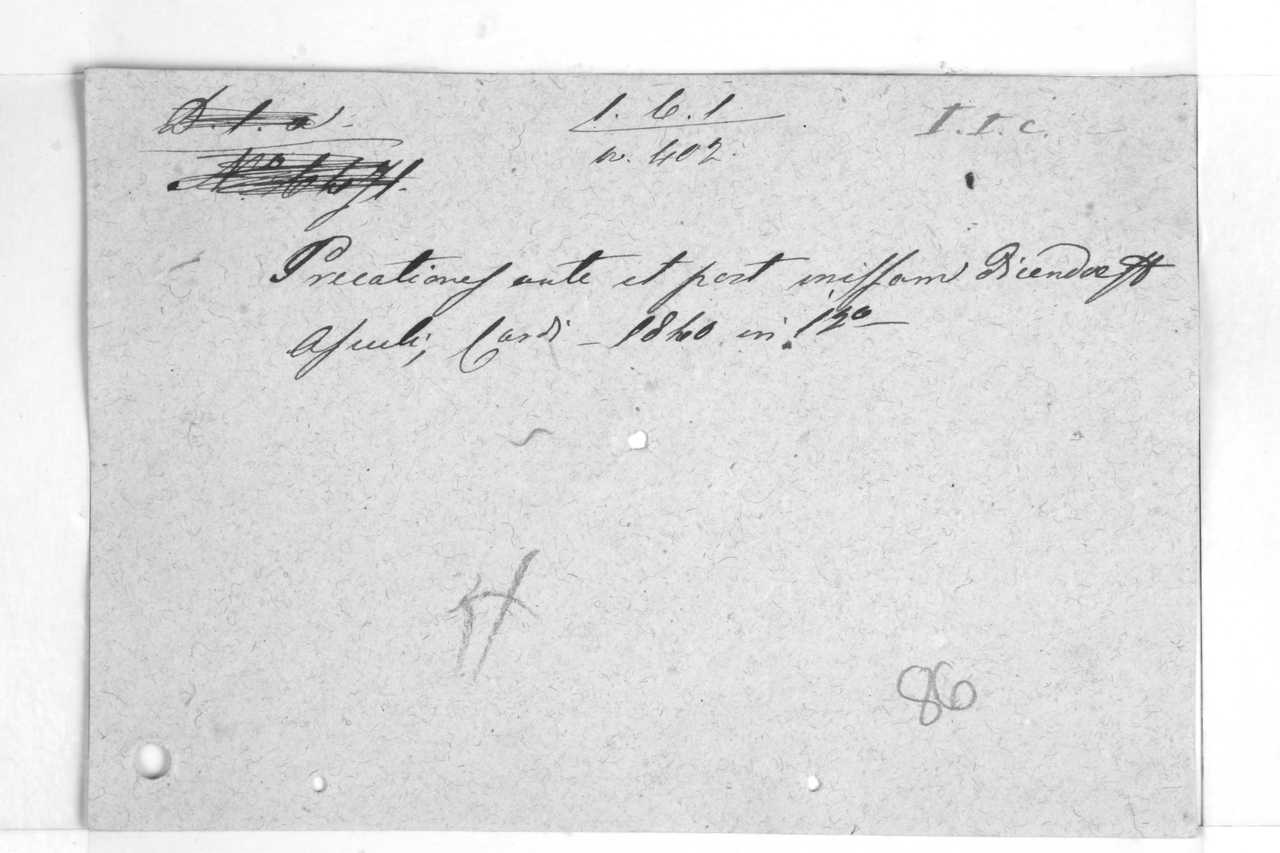 1. 6. 1
I. I. c.
n. 402.
Precationes ante et post missam dicendae
Asculi, Cardi – 1840. in 12º
86